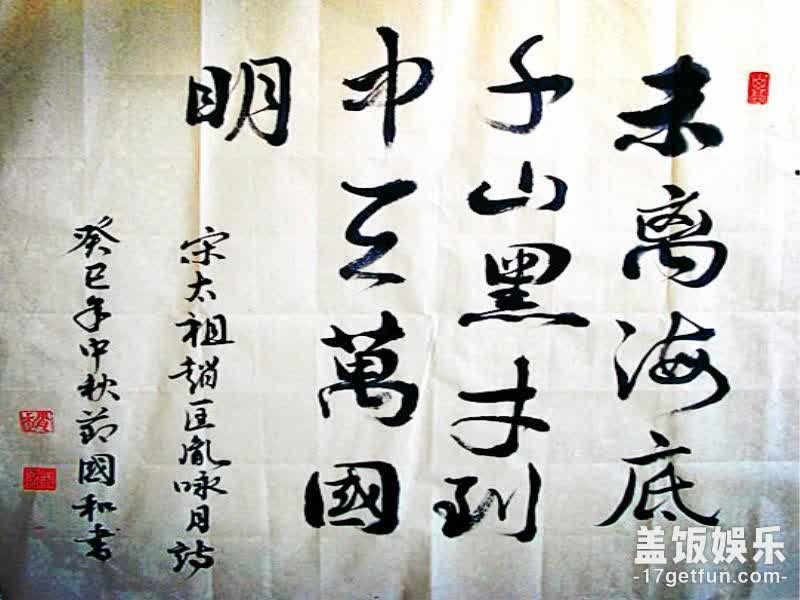 未离海底
千山黑才到
中天萬國
明
宋太祖趙匡胤咏月詩
癸巳年中秋節國和書
盖饭娱乐
-17getfun.com-